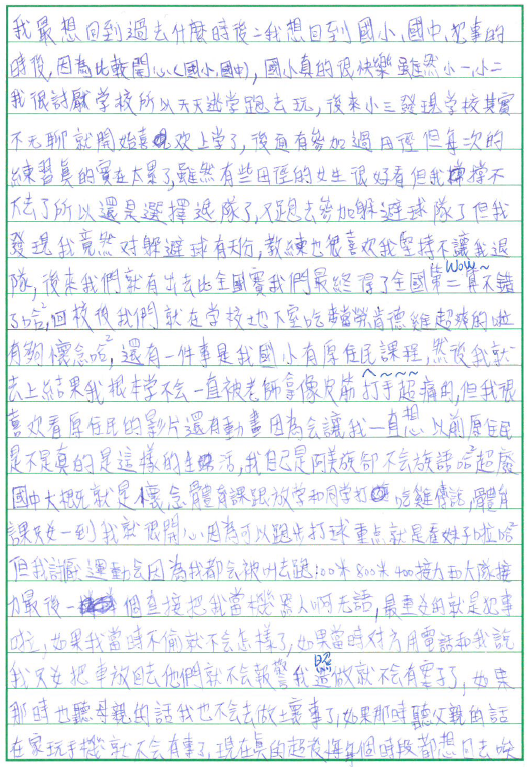 我最想回到過去什麼時後=我想回到國小、國中、犯事的
時後,因為比較開心(國小,國中),國小真的很快樂雖然小一、小二
我很討厭學校所以天天逃学跑去玩,後來小三發現学校其實
不无聊就開始喜欢上學了,後面有參加過田徑但每次的
練習真的實在太累了,雖然有些田徑的女生很好看但我撐不
下去了所以還是選擇退隊了,又跑去參加躲避球隊了但我
發現我竟然对躲避球有天份,教練也很喜欢我堅持不讓我退
隊,後來我們就有出去比全國賽我們最終得了全國第二真不錯
Wow~
了哈²,回校後我們就在学校地下室吃犒勞肯德雞超爽的啦
有夠懷念哈²,還有一件事是我國小有原住民課程,然後我就
去上結果我根本学不会一直被老師拿像皮筋打手超痛的,但我很
喜欢看原住民的影片還有動畫因為会讓我一直想以前原住民
是不是真的是這樣的生活,我自己是阿美族卻不会族語哈²超廢
國中大概就是懷念體育課跟放学和同学打 吃雞傳說,體育
課只要一到我就很開心因為可以跑步打球重点就是看妹子啦哈²
但我討厭運動会因為我都会被叫去跑100米800米400接力西大隊接
力最後一個直接把我當機器人啊无語,最重要的就是犯事
啦,如果我當時不偷就不会怎樣了,如果當時对方用電話和我說
我只要把車放回去他們就不会報警我照做就不会有事了,如果
那時也聽母親的話我也不会去做壞事了,如果那時聽父親的話
在家玩手機就不会有事了,現在真的超後悔每個時段都想回去唉